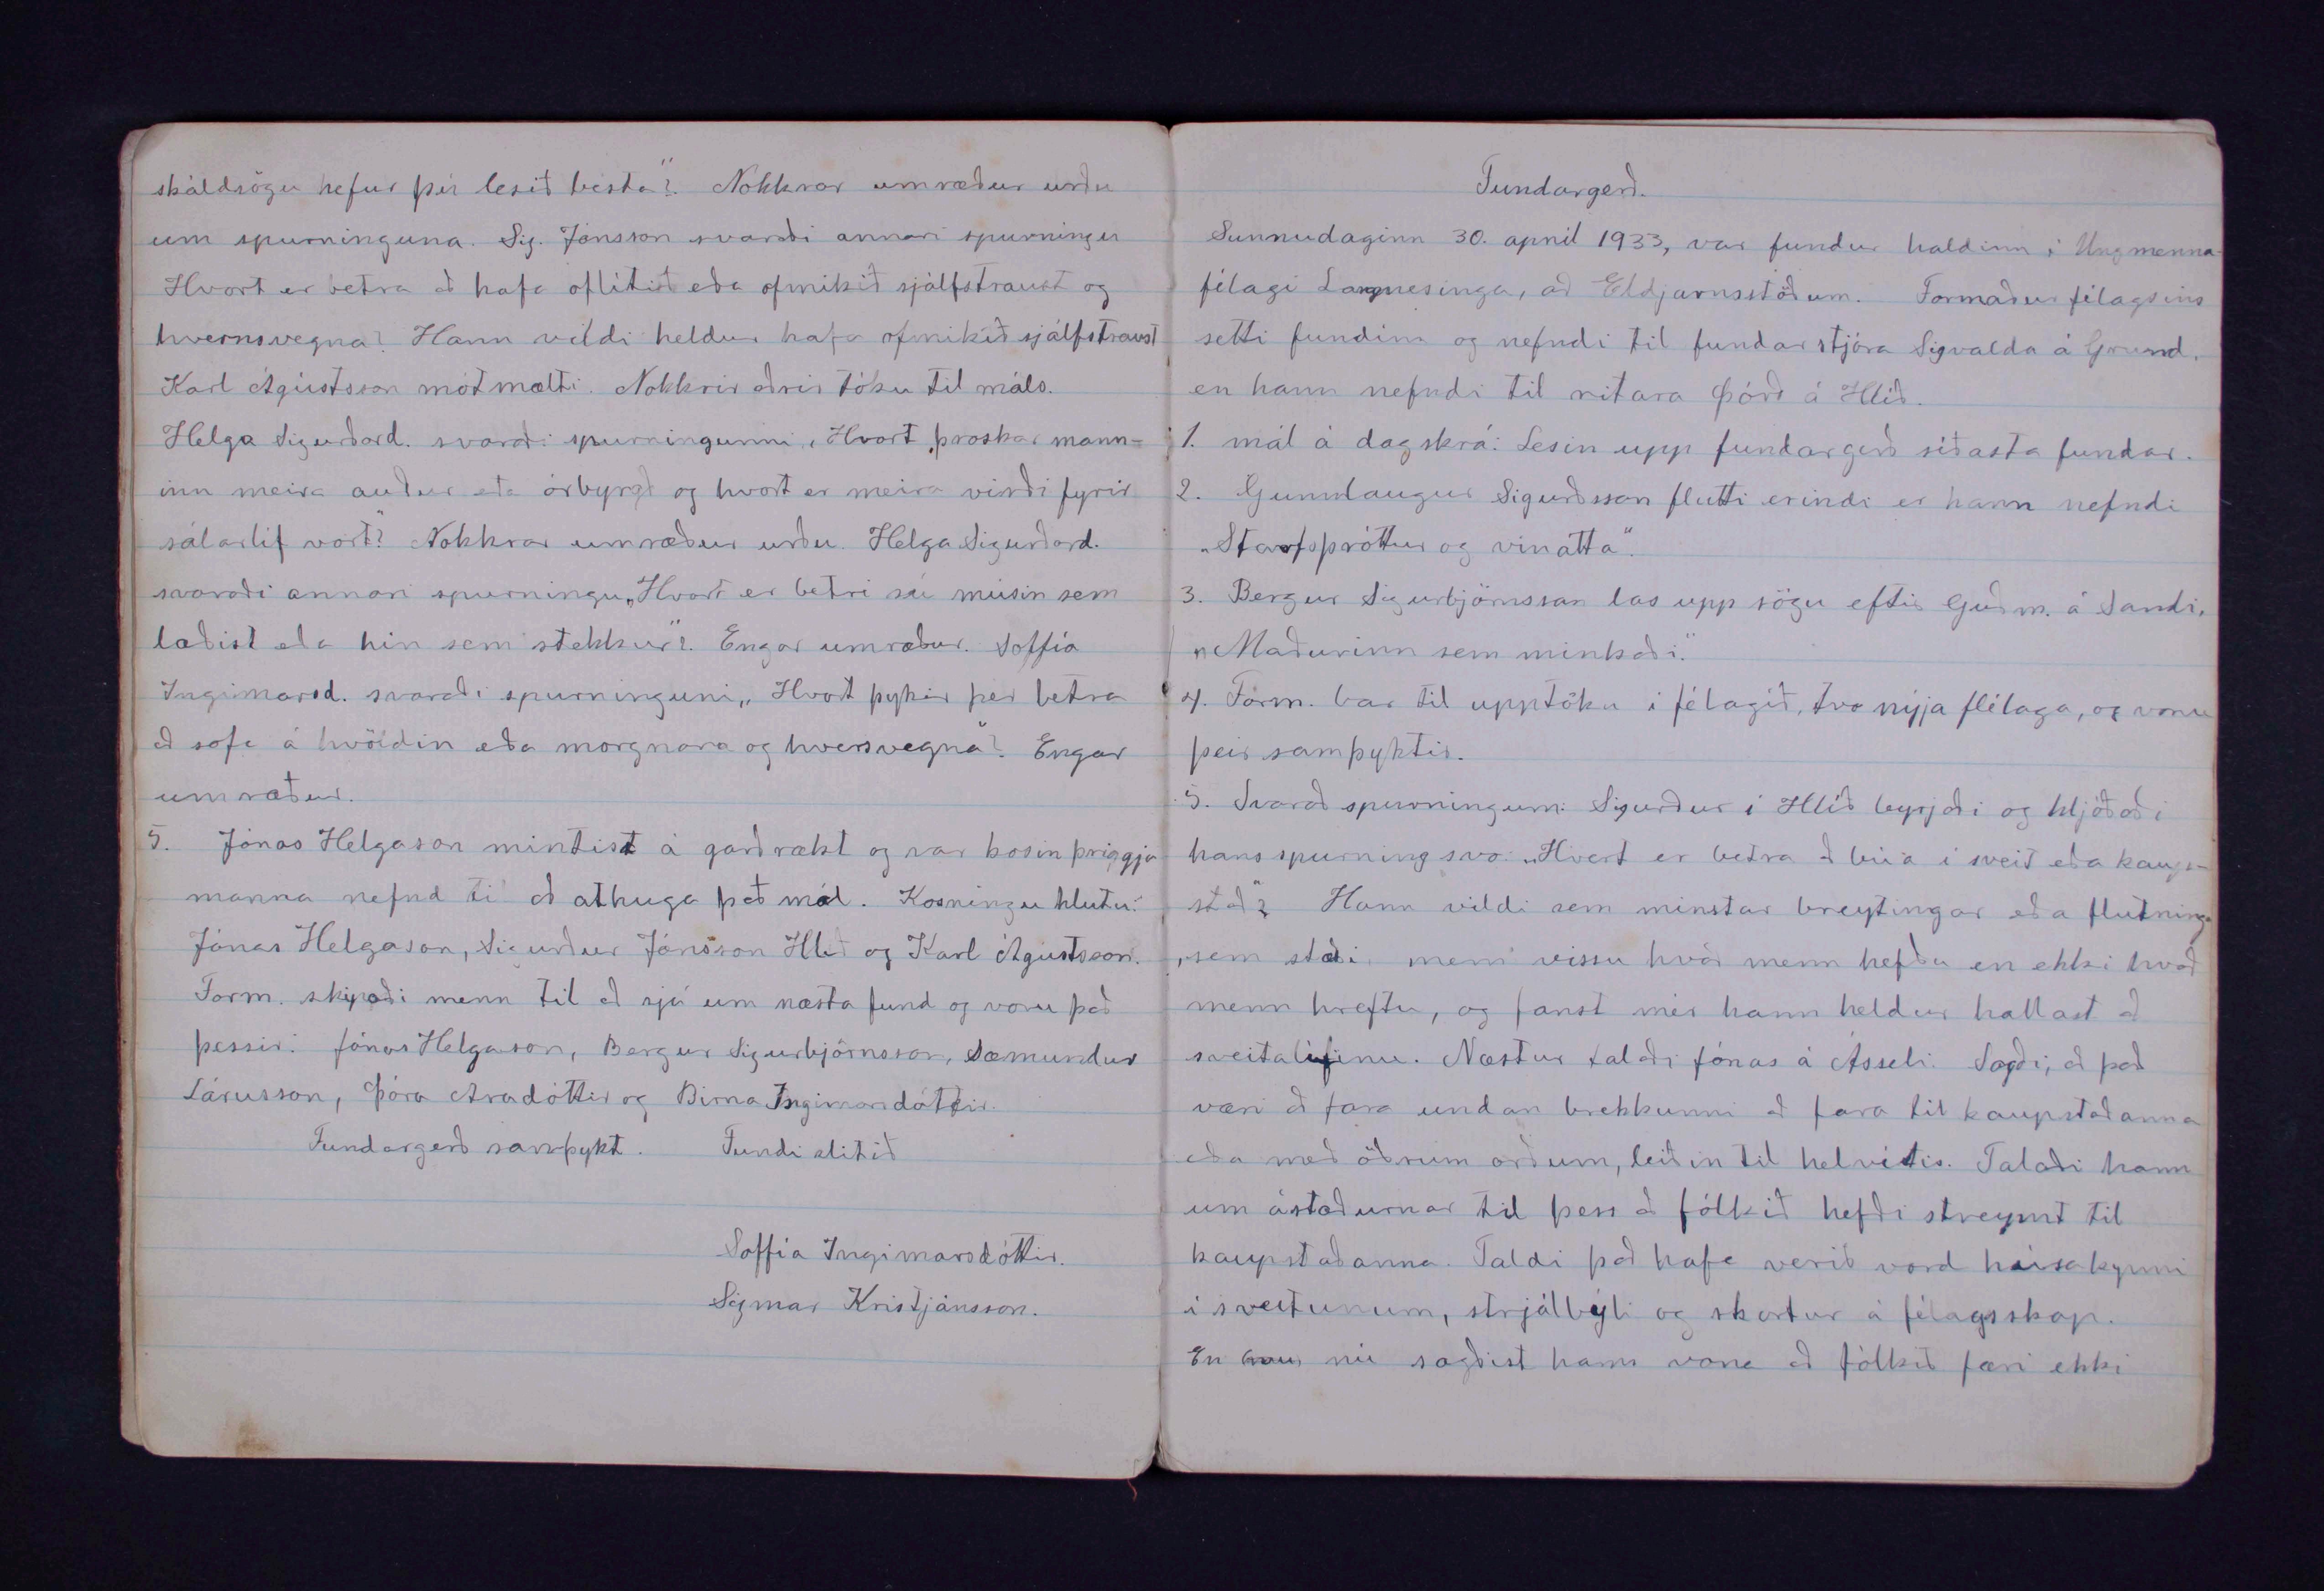 skáldsögu hefur þér lesið besta"? Nokkrar umræður urðu
um spurninguna. Sig. Jónsson svaraði annari spurningu
Hvort er betra að hafa oflítið eða ofmikið sjálfstraust og
hvernsvegna? Hann vildi heldur hafa ofmikið sjálfstraust
Karl Ágústsson mótmælti. Nokkrir aðrir tóku til máls.
Helga Sigurðard. svaraði spurningunni, Hvort þroskar mann=
inn meira auður eða örbyrgð og hvort er meira virði fyrir
sálarlíf vort"? Nokkrar umræður urðu. Helga Sigurðard.
svaraði annari spurningu „Hvort er betri sú músin sem
læðist eða hin sem stekkur"? Engar umræður. Soffía
Ingimarsd. svaraði spurninguni „Hvort þykir þér betra
að sofa á kvöldin eða morgnana og hversvegna"? Engar
umræður.
5. Jónas Helgason mintist á garðrækt og var kosin þriggja
manna nefnd til að athuga það mál. Kosningu hlutu:
Jónas Helgason, Sigurður Jónsson Hlíð og Karl Ágústsson.
Form. skipaði menn til að sjá um næsta fund og voru það
þessir: Jónas Helgason, Bergur Sigurbjörnsson, Sæmundur
Lárusson, Þóra Aradóttir og Birna Ingimarsdóttir.
Fundargerð samþykt. Fundi slitið
Soffía Ingimarsdóttir.
Sigmar Kristjánsson.
Fundargerð.
Sunnudaginn 30. apríl 1933, var fundur haldinn í Ungmenna-
félagi Langnesinga, að Eldjarnsstöðum. Formaður félagsins
setti fundinn og nefndi til fundarstjóra Sigvalda á Grund,
en hann nefndi til ritara Þórð á Hlíð.
1. mál á dagskrá: Lesin upp fundargerð síðasta fundar.
2. Gunnlaugur Sigurðsson flutti erindi er hann nefndi
„Starfsþróttur og vinátta".
3. Bergur Sigurbjörnsson las upp sögu eftir Guðm. á Sandi,
„Maðurinn sem minkaði."
4. Form. bar til upptöku í félagið, tvo nýja félaga, og voru
þeir samþyktir.
5. Svarað spurningum: Sigurður í Hlíð byrjaði og hljóðaði
hans spurning svo: „Hvert er betra að búa í sveit eða kaup-
stað"? Hann vildi sem minstar breytingar eða flutninga
sem stæði menn vissu hvað menn hefðu en ekki hvað
menn hreftu, og fanst mér hann heldur hallast að
sveitalífinu. Næstur talaði Jónas á Ásseli. Sagði, að það
væri að fara undan brekkunni að fara til kaupstaðanna
eða með öðrum orðum, leiðin til helvítis. Talaði hann
um ástæðurnar til þess að fólkið hefði streymt til
kaupstaðanna. Taldi það hafa verið vond húsakynni
í sveitunum, strjálbýli og skortur á félagsskap.
En nú sagðist hann vona að fólkið færi ekki